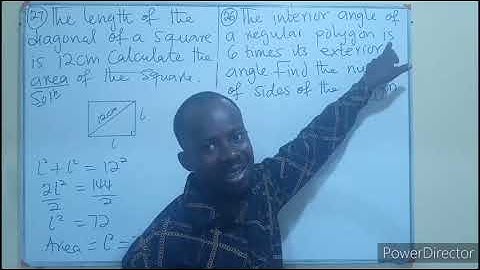 (27) The length of the
diagonal of a square
is 12cm Calculate the
area of the square.
Soln
12cm
l
l
l² + l² = 12²
2l² = 144
2 2
l² = 72
Area = l² =
(26) The interior angle of
a regular polygon is
6 times its exterior
angle. Find the
of sides of the
PowerDirector